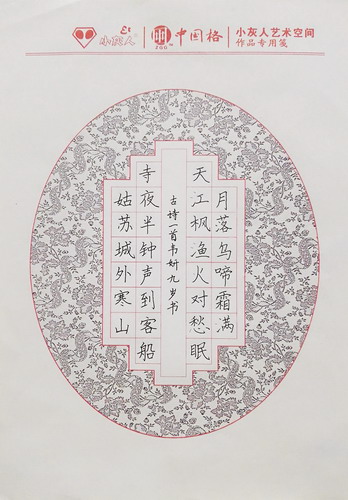 小灰人
中国格
ZGG
小灰人艺术空间
作品专用笺
月落乌啼霜满
天江枫渔火对愁眠
古诗一首韦妍九岁书
寺夜半钟声到客船
姑苏城外寒山